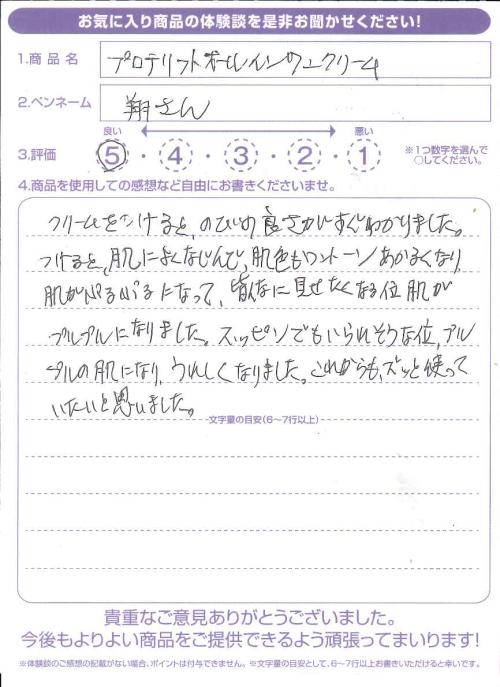 お気に入り商品の体験談を是非お聞かせください!
1.商品名 プロテリフトオールインワンクリーム
2.ペンネーム 翔さん
良い 悪い
3.評価 5・4・3・2・1 ※1つ数字を選んで
○してください。
4.商品を使用しての感想など自由にお書きくださいませ。
クリームをつけると、のびの良さがすぐわかりました。
つけると、肌によくなじんで、肌色もワントーンあかるくなり、
肌がぷるぷるになって、皆んなに見せたくなる位肌が
プルプルになりました。スッピンでもいられそうな位、プル
プルの肌になり、うれしくなりました。これからも、ズッと使って
いたいと思いました。
文字量の目安(6~7行以上)
貴重なご意見ありがとうございました。
今後もよりよい商品をご提供できるよう頑張ってまいります!
※体験談のご感想の記載がない場合、ポイントは付与できません。 ※文字量の目安として、6~7行以上お書きいただけると幸いです。